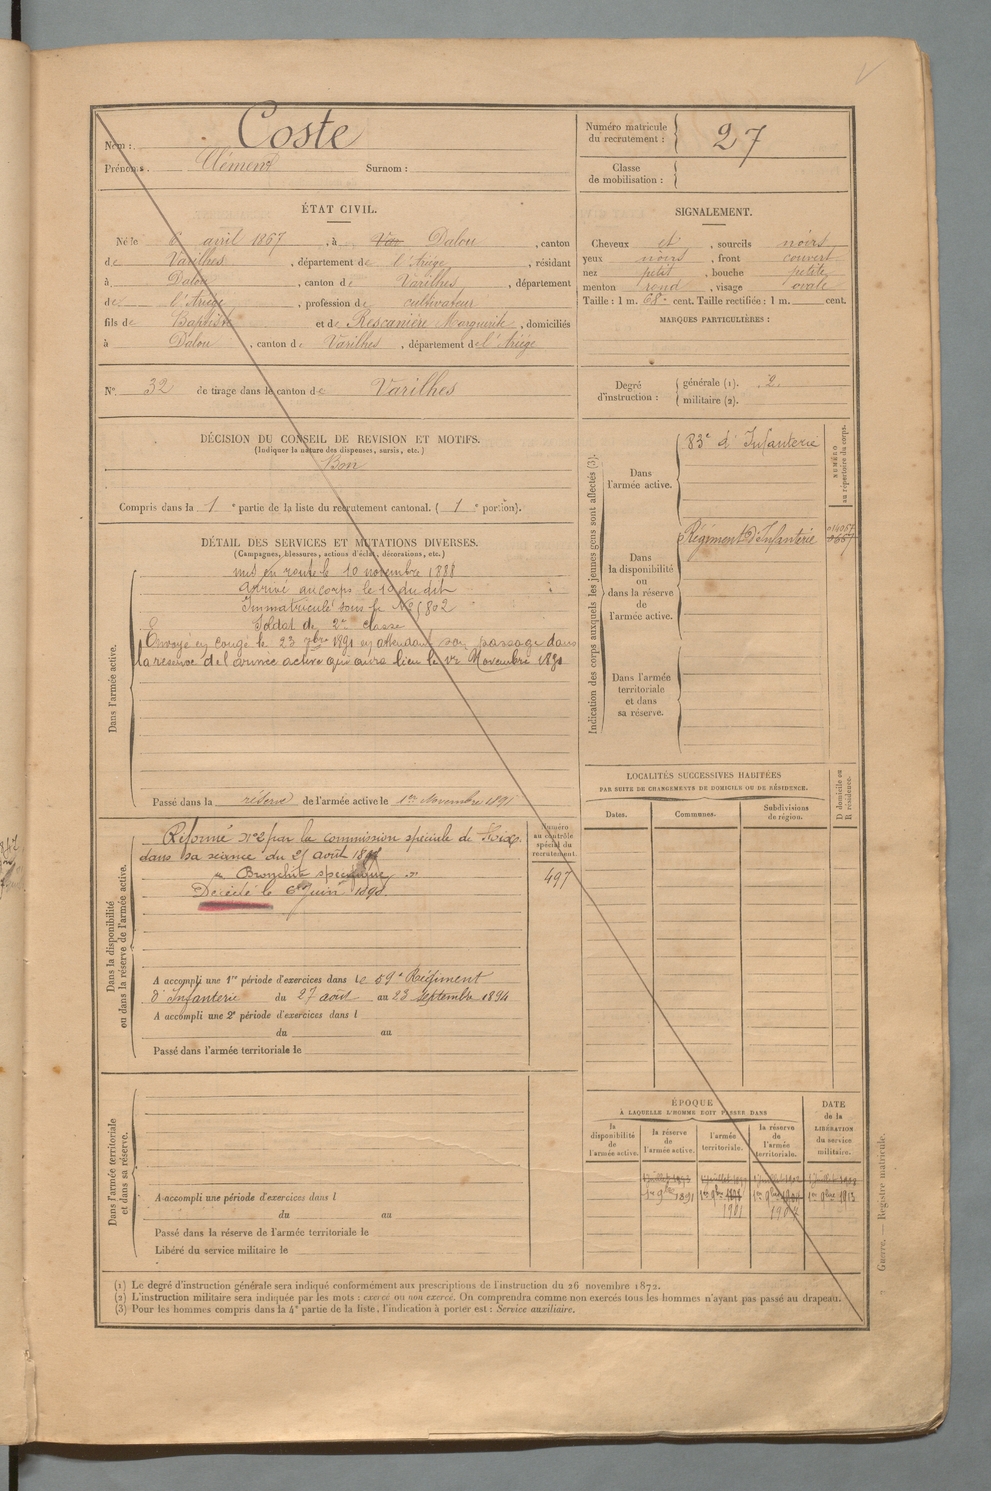 Nom : Coste
Prénoms. Clément Surnom :
Numéro matricule
du recrutement : 27
Classe
de mobilisation :
ÉTAT CIVIL.
Né le 6 avril 1867, à Dalou, canton
de Varilhes, département de l'Ariège, résidant
à Dalou, canton de Varilhes, département
de l'Ariège, profession de cultivateur
fils de Baptiste et de Rescanière Marguerite, domiciliés
à Dalou, canton de Varilhes, département de l'Ariége
SIGNALEMENT.
Cheveux et, sourcils noirs
yeux noirs, front couvert
nez petit, bouche petite
menton rond, visage ovale
Taille : 1 m. 68 cent. Taille rectifiée : 1 m. cent.
MARQUES PARTICULIÈRES :
N° 32 de tirage dans le canton de Varilhes
Degré
d'instruction :
générale (1). 2
militaire (2).
DÉCISION DU CONSEIL DE REVISION ET MOTIFS.
(Indiquer la nature des dispenses, sursis, etc.)
Bon
Compris dans la 1e partie de la liste du recrutement cantonal. (1e portion).
DÉTAIL DES SERVICES ET MUTATIONS DIVERSES.
(Campagnes, blessures, actions d'éclat, décorations, etc.)
Dans l'armée active.
mis en route le 10 novembre 1888
Arrivé au corps le du dit
Immatriculé sous le N°
Soldat de 2e classe
Envoyé en congé le 23 7bre 1891 en attendant son passage dans
la réserve de l'armée active qui aura lieu le 1er Novembre 1891
Passé dans la réserve de l'armée active le 1er Novembre 1891
Indication des corps auxquels les jeunes gens sont affectés (3).
Dans
l'armée active.
83e d'Infanterie
NUMÉRO
au répertoire du corps.
Dans
la disponibilité
ou
dans la réserve
de
l'armée active.
Régiment d'Infanterie
Dans l'armée
territoriale
et dans
sa réserve.
LOCALITÉS SUCCESSIVES HABITÉES
PAR SUITE DE CHANGEMENTS DE DOMICILE OU DE RÉSIDENCE.
Dates.
Communes.
Subdivisions
de région.
D domicile ou
R résidence.
Dans la disponibilité
ou dans la réserve de l'armée active.
Réformé N°2 par la commission spéciale de Foix
dans sa séance du 21 août
Bronchite spécifique
Décédé le 6 Juin 1898.
Numéro
au contrôle
spécial du
recrutement.
497
A accompli une 1re période d'exercices dans le 59e Régiment
d'Infanterie du 27 août au 23 septembre 1894
A accompli une 2e période d'exercices dans l
du au
Passé dans l'armée territoriale le
Dans l'armée territoriale
et dans sa réserve.
A accompli une période d'exercices dans l
du au
Passé dans la réserve de l'armée territoriale le
Libéré du service militaire le
ÉPOQUE
À LAQUELLE L'HOMME DOIT PASSER DANS
la
disponibilité
de
l'armée active.
la réserve
de
l'armée active.
l'armée
territoriale.
la réserve
de
l'armée
territoriale.
DATE
de la
LIBÉRATION
du service
militaire.
1er 9bre 1891
1er 9bre 1901
1er 9bre 1907
1er 9bre 1913
(1) Le degré d'instruction générale sera indiqué conformément aux prescriptions de l'instruction du 26 novembre 1872.
(2) L'instruction militaire sera indiquée par les mots : exercé ou non exercé. On comprendra comme non exercés tous les hommes n'ayant pas passé au drapeau.
(3) Pour les hommes compris dans la 4e partie de la liste, l'indication à porter est : Service auxiliaire.
Guerre. — Registre matricule.